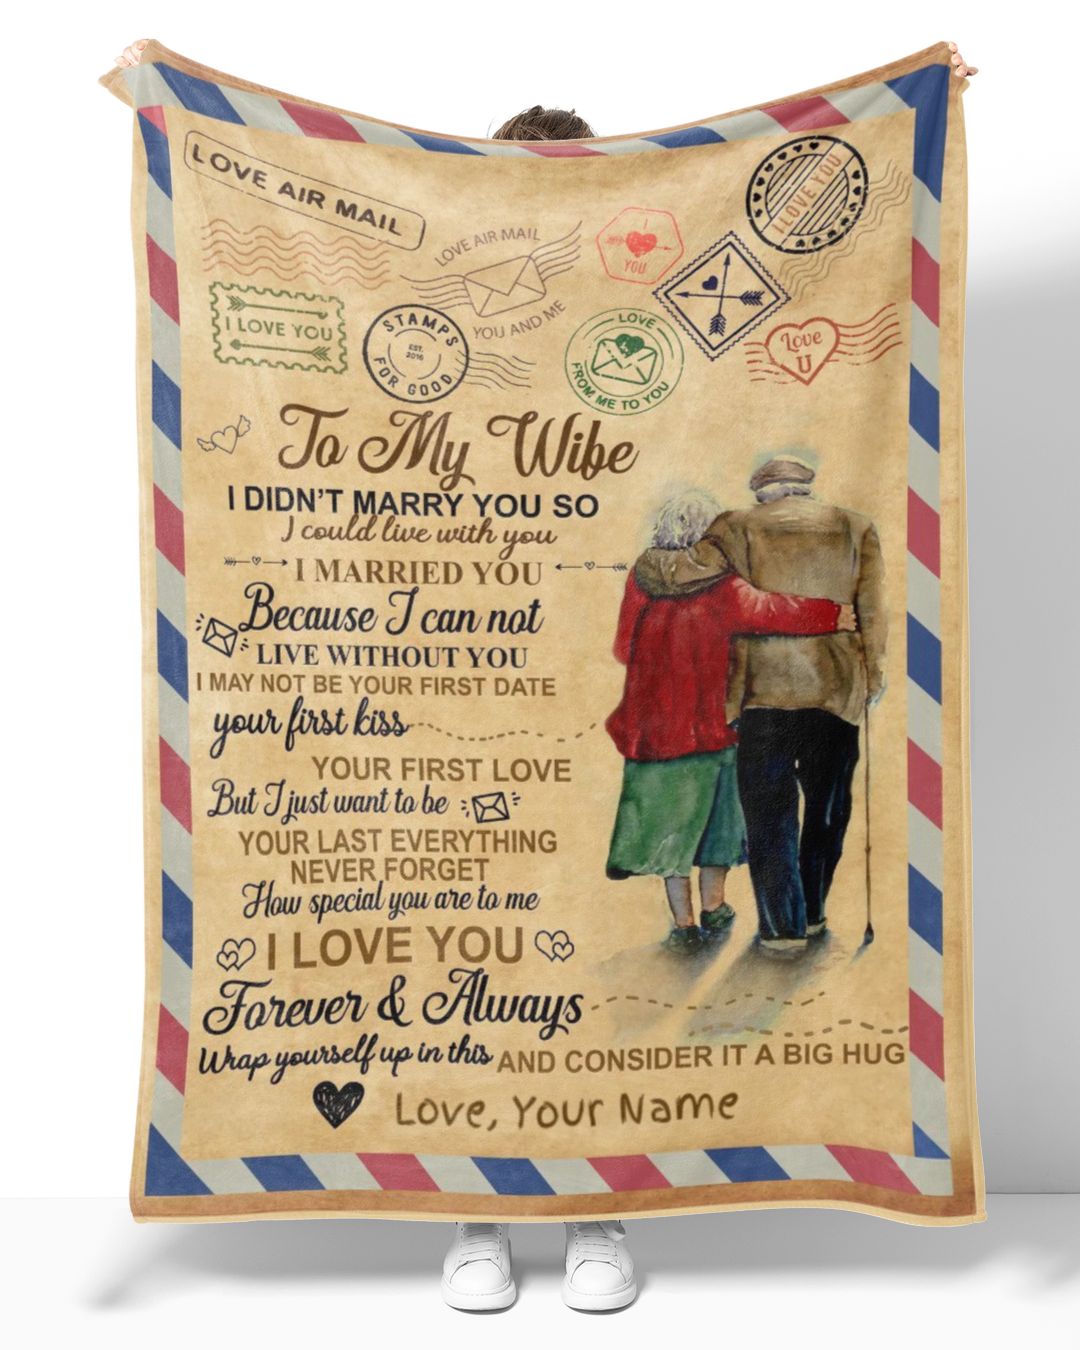 LOVE AIR MAIL
I LOVE YOU
LOVE AIR MAIL
YOU AND ME
YOU
I LOVE YOU
STAMPS
EST.
2016
FOR GOOD
LOVE
FROM ME TO YOU
Love
U
To My Wife
I DIDN'T MARRY YOU SO
I could live with you
I MARRIED YOU
Because I can not
LIVE WITHOUT YOU
I MAY NOT BE YOUR FIRST DATE
your first kiss
YOUR FIRST LOVE
But I just want to be
YOUR LAST EVERYTHING
NEVER FORGET
How special you are to me
I LOVE YOU
Forever & Always
Wrap yourself up in this AND CONSIDER IT A BIG HUG
Love, Your Name